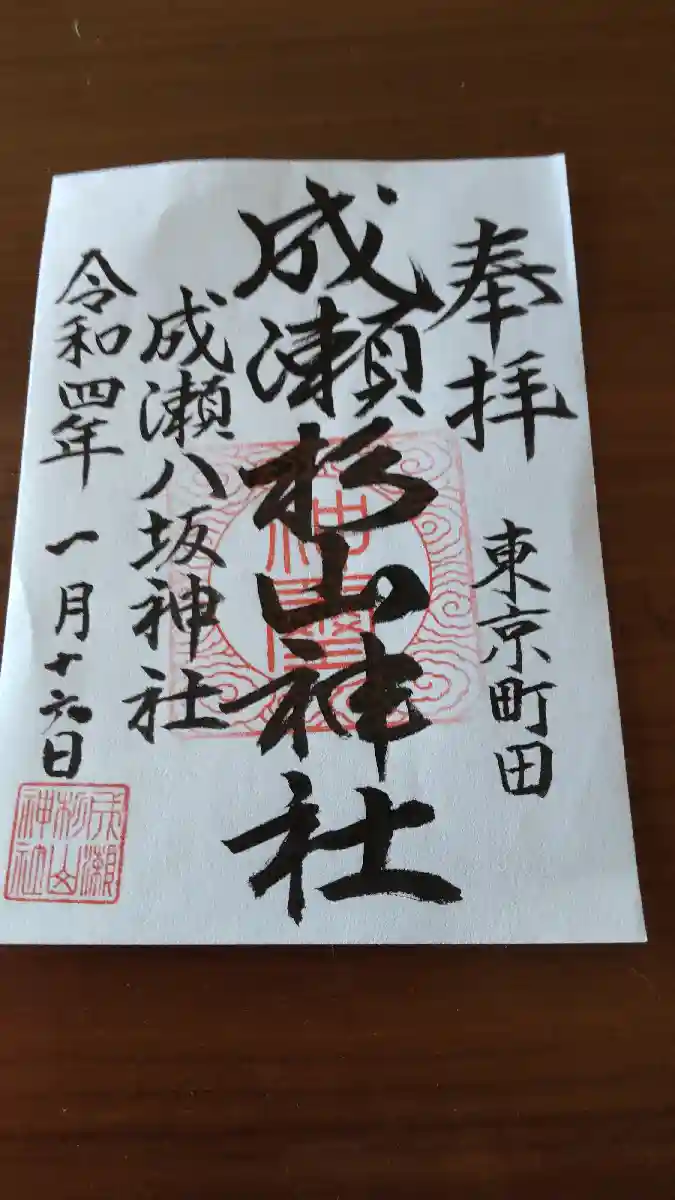 奉拝
東京町田
成瀬杉山神社
神璽
成瀬八坂神社
令和四年
一月十六日
成瀬
杉山
神社